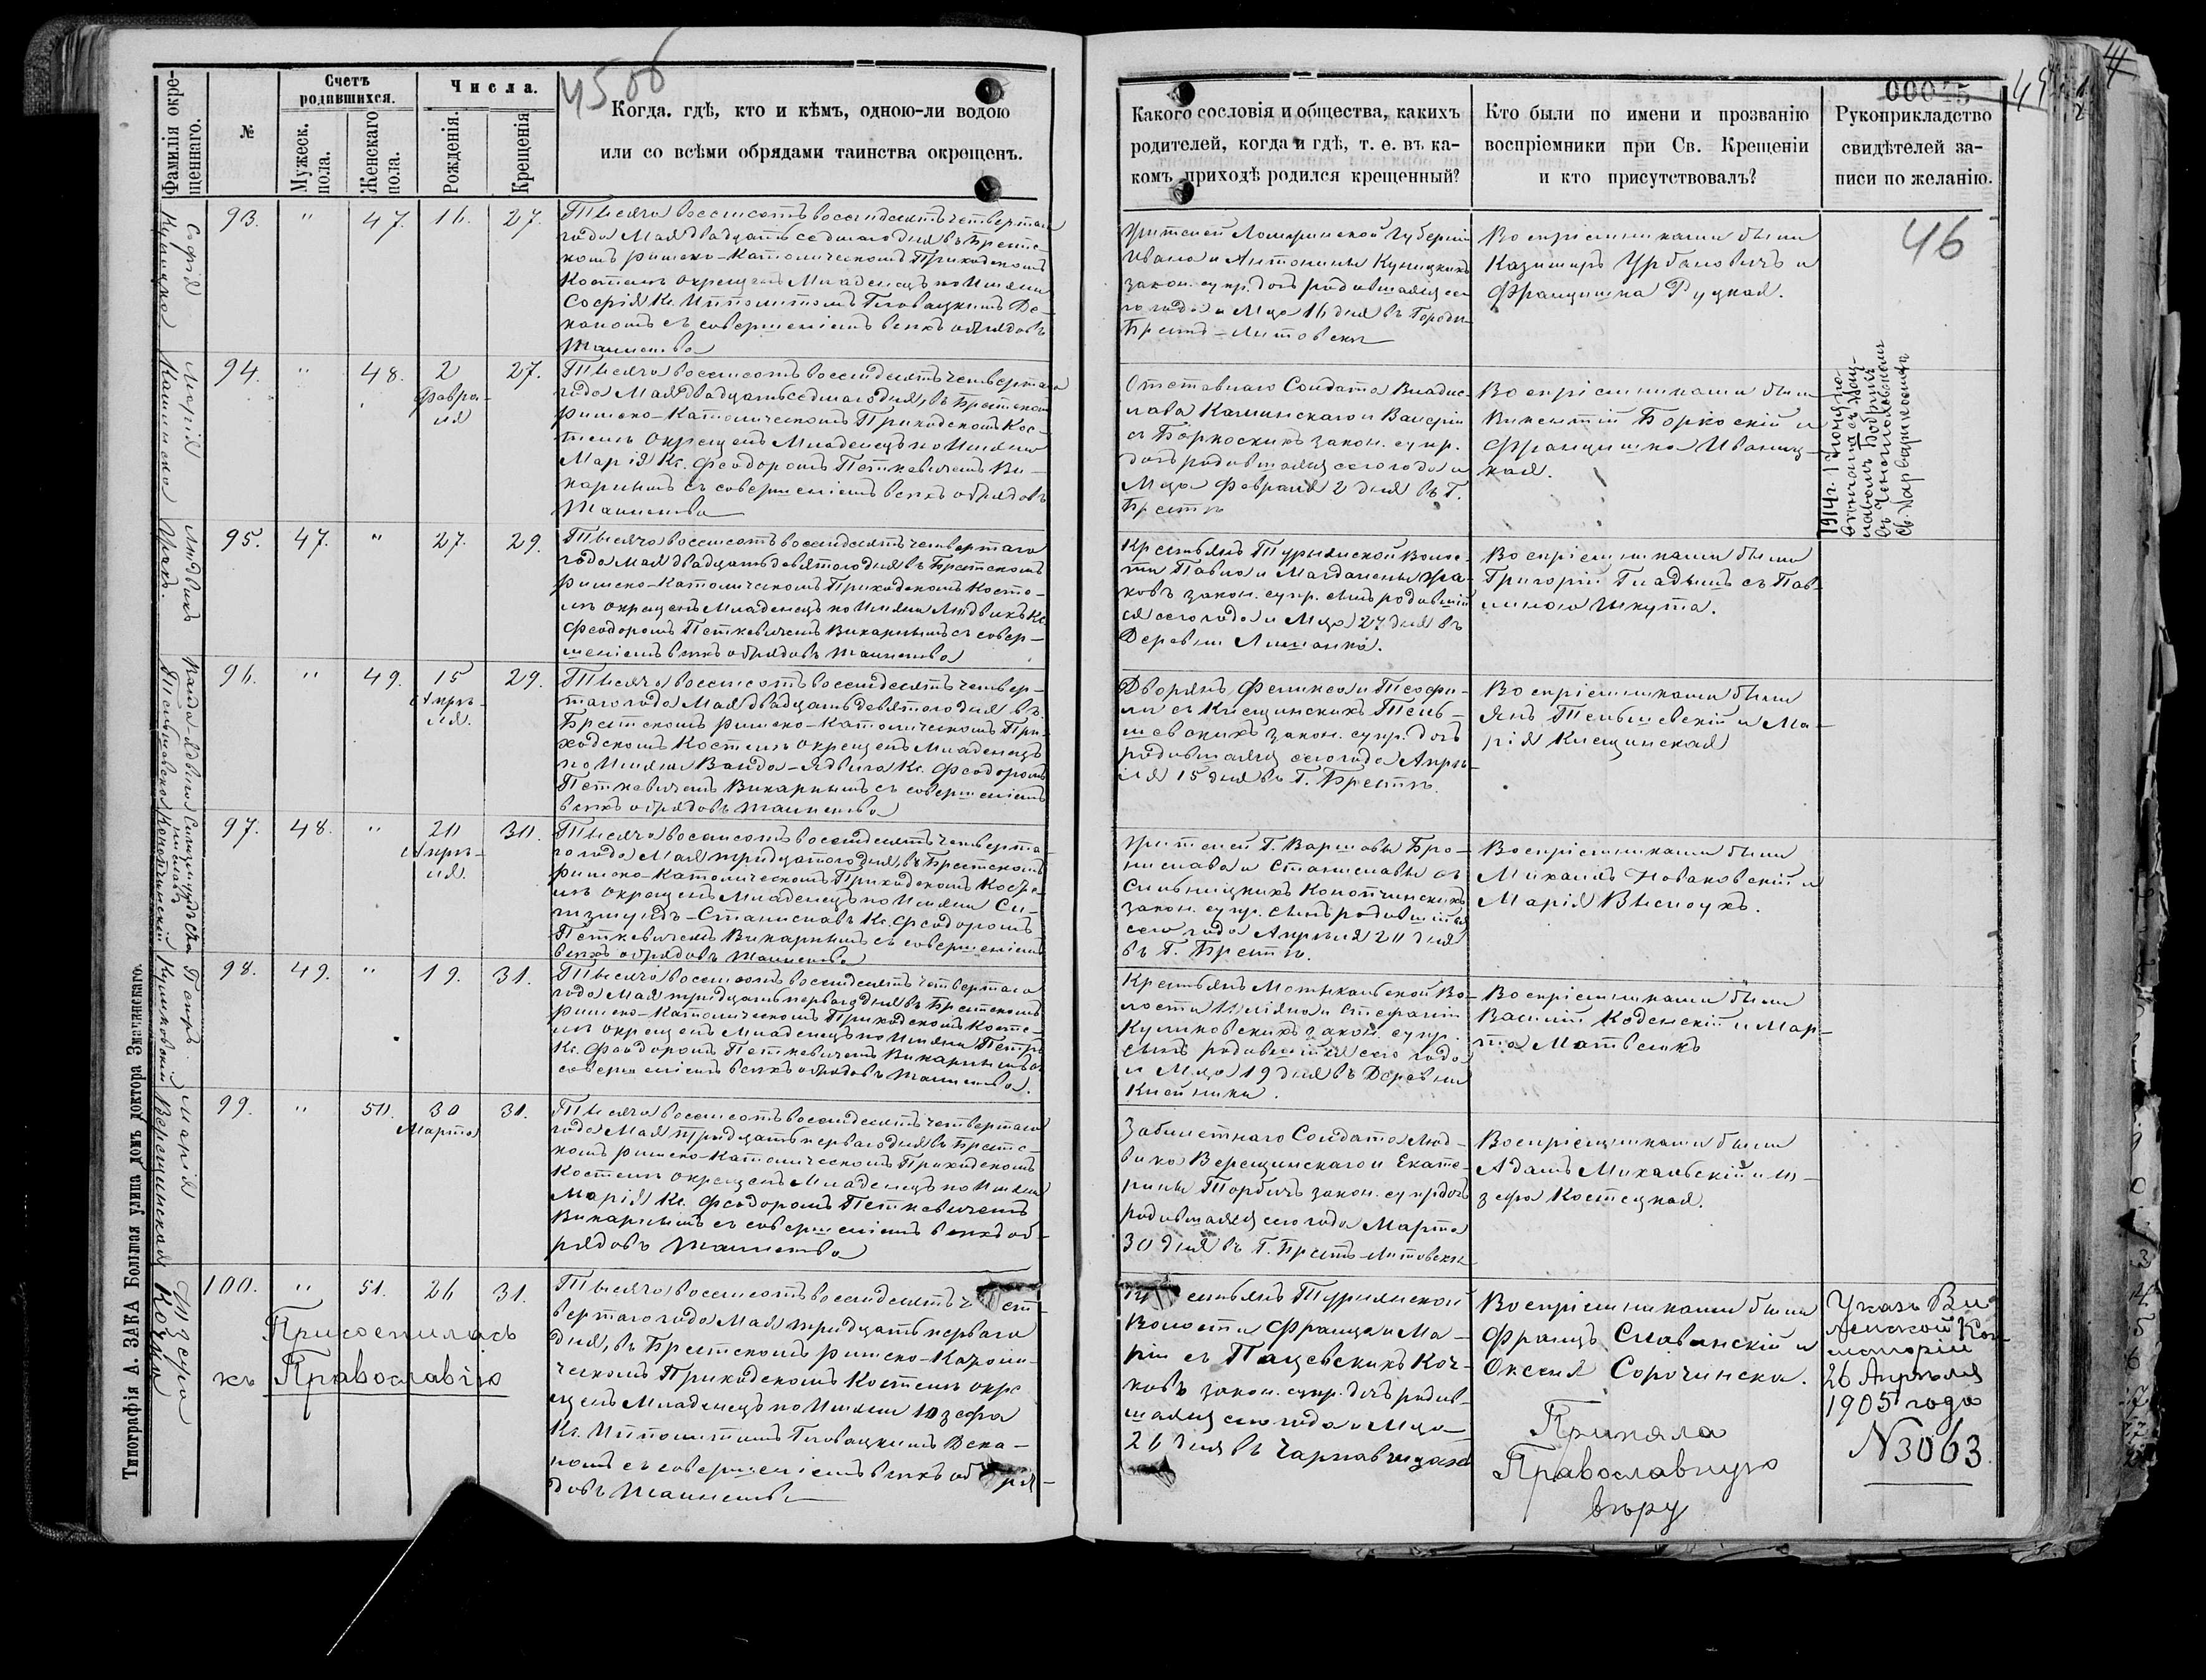 4500
Фамилія окре-
щеннаго.
№
Счетъ
родившихся.
Мужеск.
пола.
Женскаго
пола.
Числа.
Рожденія.
Крещенія
Когда. гдѣ, кто и кѣмъ, одною-ли водою
или со всѣми обрядами таинства окрещенъ.
Софія
Куницка
93.
"
47.
16.
27.
Тысяча восемсотъ восемдесятъ четвертаго
года Мая двадцать седмаго дня въ Брестс-
комъ римско-Католическомъ Приходскомъ
Костелѣ окрещенъ Младенецъ по Имени
Софія Кс. Ипполитомъ Гловацкимъ Де-
каномъ съ совершеніемъ всѣхъ обрядовъ
Таинства
Марія
Каминска
94.
"
48.
2
Февра-
ля
27.
Тысяча восемсотъ восемдесятъ четвертаго
года Мая двадцать седмаго дня, въ Брестскомъ
римско-Католическомъ Приходскомъ Кос-
телѣ окрещенъ Младенецъ по Имени
Марія Кс. Феодоромъ Петкевичемъ Ви-
карнымъ съ совершеніемъ всѣхъ обрядовъ
Таинства
Людвикъ
95.
47.
"
27.
29.
Тысяча восемсотъ восемдесятъ четвертаго
года Мая двадцать девятого дня въ Брестскомъ
римско-Католическомъ Приходскомъ Косте-
лѣ окрещенъ Младенецъ по Имени Людвикъ Кс.
Феодоромъ Петкевичемъ Викарнымъ съ совер-
шеніемъ всѣхъ обрядовъ таинства
Ванда-Ядвига
96.
"
49.
15
Апрѣ-
ля.
29.
Тысяча восемсотъ восемдесятъ четвер-
таго года Мая двадцать девятого дня въ
Брестскомъ римско-Католическомъ При-
ходскомъ Костелѣ окрещенъ Младенецъ
по Имени Ванда-Ядвига Кс. Феодоромъ
Петкевичемъ Викарнымъ съ совершеніемъ
всѣхъ обрядовъ таинства
Конопчинскій
97.
48.
"
20
Апрѣ-
ля.
30.
Тысяча восемсотъ восемдесятъ четверта-
го года Мая тридцатого дня, въ Брестскомъ
римско-Католическомъ Приходскомъ Косте-
лѣ окрещенъ Младенецъ по Имени Си-
гизмундъ-Станиславъ Кс. Феодоромъ
Петкевичемъ Викарнымъ съ совершеніемъ
всѣхъ обрядовъ таинства
Петръ
Куликовскій
98.
49.
"
19.
31.
Тысяча восемсотъ восемдесятъ четвертаго
года Мая тридцать перваго дня въ Брестскомъ
римско-Католическомъ Приходскомъ Косте-
лѣ окрещенъ Младенецъ по Имени Петръ
Кс. Феодоромъ Петкевичемъ Викарнымъ съ
совершеніемъ всѣхъ обрядовъ таинства.
Марія
Верещинская
99.
"
50.
30
Марта
31.
Тысяча восемсотъ восемдесятъ четвертаго
года Мая тридцать перваго дня въ Брестс-
комъ римско-Католическомъ Приходскомъ
Костелѣ окрещенъ Младенецъ по Имени
Марія Кс. Феодоромъ Петкевичемъ
Викарнымъ съ совершеніемъ всѣхъ об-
рядовъ таинства
Юзефа
100.
"
51.
26
31.
Присоенилась
къ Православію
Тысяча восемсотъ восемдесятъ чет-
вертаго года Мая тридцать перваго
дня, въ Брестскомъ римско-Католи-
ческомъ Приходскомъ Костелѣ окре
щенъ Младенецъ по Имени Юзефа
Кс. Ипполитомъ Гловацкимъ Дека-
номъ съ совершеніемъ всѣхъ обря-
довъ таинства
Типографія А. ЗАКА Большая улица домъ доктора Змачинскаго.
Какого сословія и общества, какихъ
родителей, когда и гдѣ, т. е. въ ка-
комъ приходѣ родился крещенный?
Кто были по имени и прозванію
воспріемники при Св. Крещеніи
и кто присутствовалъ?
Рукоприкладство
свидѣтелей за-
писи по желанію.
46
Жителей Ломжинской Губерніи
Ивана и Антонины Куницкихъ
закон. супр. дочь родившаяся се
го года и Мца 16 дня въ Городѣ
Брестъ-Литовскѣ
Воспріемниками были
Казимиръ Урбановичъ и
Францишка Руцкая.
Отставнаго Солдата Владис-
лава Каминскаго и Валеріи
съ Боркоскихъ закон. супр.
дочь родившаяся сего года и
Мца Февраля 2 дня въ Г.
Брестѣ
Воспріемниками были
Викентій Боркоскій и
Францишка Иваниц-
кая.
1914 г. 1 Іюня по-
Крестьянъ Турнянской Волос-
ти Павла и Магдалены
закон. супр. сынъ родившій
ся сего года и Мца 27 дня въ
Деревни
Воспріемниками были
Григорій Гладышъ съ Пав-
линою Шкута.
Дворянъ Феликса и Теофи-
ли съ Клещинскихъ Тель-
шевскихъ закон. супр. дочь
родившаяся сего года Апрѣ-
ля 15 дня въ Г. Брестѣ.
Воспріемниками были
Янъ Тельшевскій и Ма-
рія Клещинская
Жителей Г. Варшавы Бро-
нислава и Станиславы съ
Сильницкихъ Конопчинскихъ
закон. супр. сынъ родившійся
сего года Апрѣля 20 дня
въ Г. Брестѣ.
Воспріемниками были
Михаилъ Новаковскій и
Марія Высоцкъ.
Крестьянъ Мотыкальской Во-
лости Юліяна и Стефаніи
Куликовскихъ закон. супр.
сынъ родившійся сего года
и Мца 19 дня въ Деревни
Клейники.
Воспріемниками были
Василій Коденскій и Мар-
та Матвеюкъ
Забилетнаго Солдата Люд-
вика Верещинскаго и Екате-
рины Торбичъ закон. супр дочь
родившаяся сего года Марта
30 дня въ Г. Брестъ-Литовскѣ
Воспріемниками были
Адамъ Михальскій и Ю-
зефа Костецкая.
Крестьянъ Турнянской
Волости Франца и Ма-
ріи съ Пацевскихъ Коч-
ковъ закон. супр. дочь родив-
шаяся сего года и Мца
26 дня въ Чарнавчицахъ
Воспріемниками были
Францъ Славинскій и
Оксеня Сорочинска.
Приняла
Православную
вѣру
Указъ Ви-
ленской Кон-
систоріи
26 Апрѣля
1905 года
N3063.